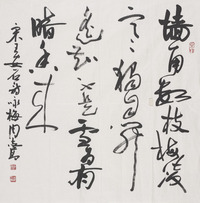 墙角数枝梅凌
寒独自开
遥知不是雪为有
暗香来
宋王安石诗咏梅周